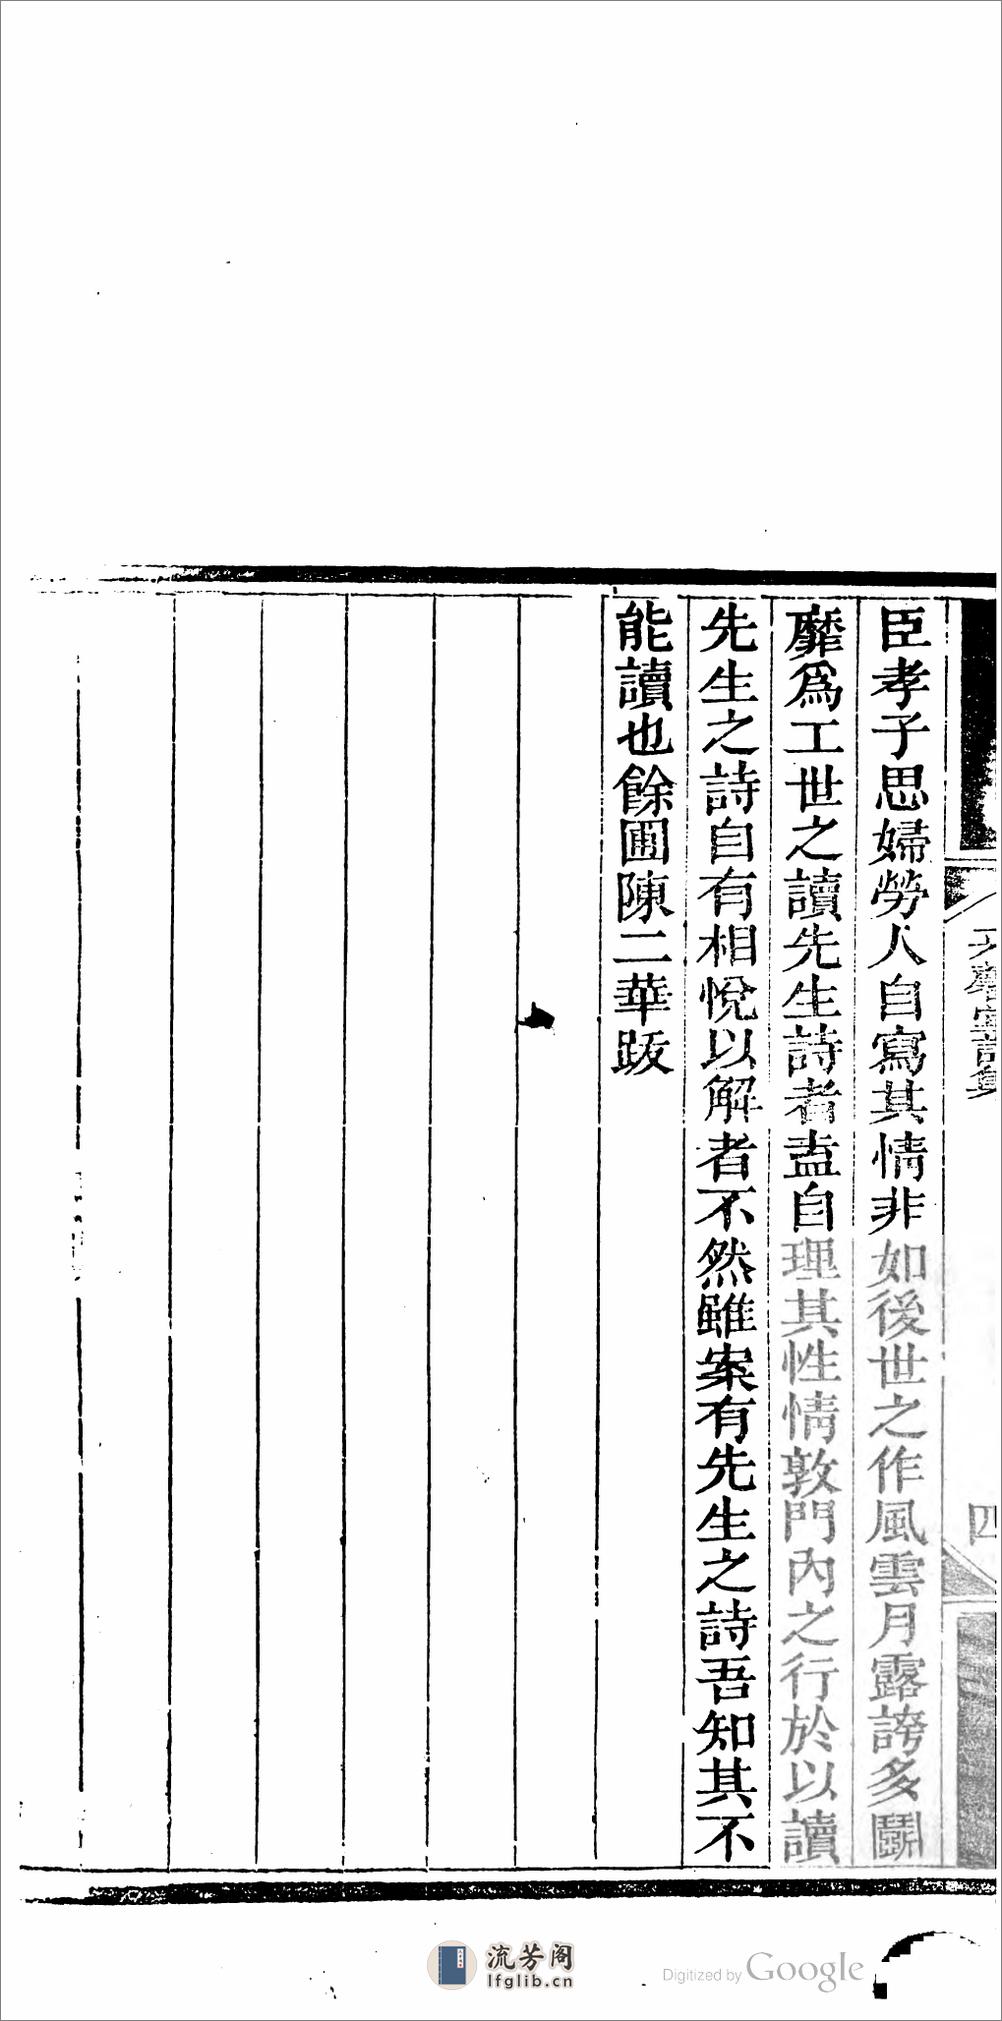 臣孝子思婦勞人自寫其情非如後世之作風雲月露誇多鬭
靡爲工世之讀先生詩者盍自理其性情敦門內之行於以讀
先生之詩自有相悅以解者不然雖案有先生之詩吾知其不
能讀也餘圃陳二華跋
四
流芳阁
lfglib.cn
Digitized by Google